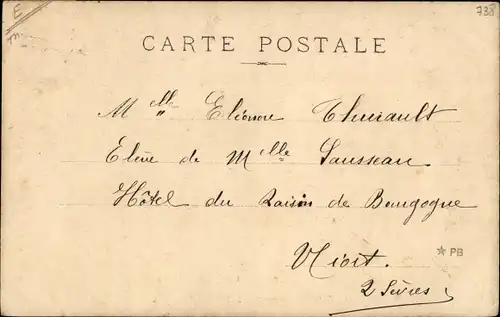 E
738
CARTE POSTALE
Mlle Eléonore Thuiault
Elève de Mlle Sausseau
Hôtel du Raisin de Bourgogne
Niort.
PB
2 Sèvres